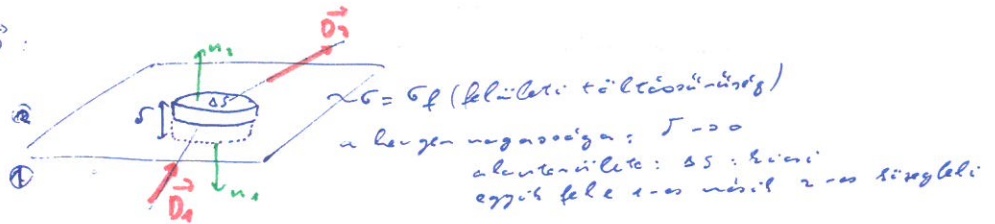 D₂
n₂
ΔS
~σ = σf (felületi töltéssűrűség)
δ
②
a henger magassága: δ → 0
alapterülete: ΔS : kicsi
①
D₁
n₁
egyik fele 1-es másik 2-es közegbeli